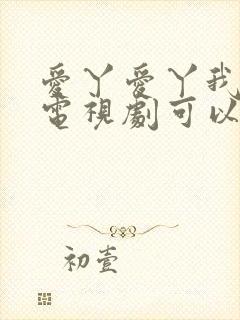 愛丫愛丫我
電視劇可以
初壹